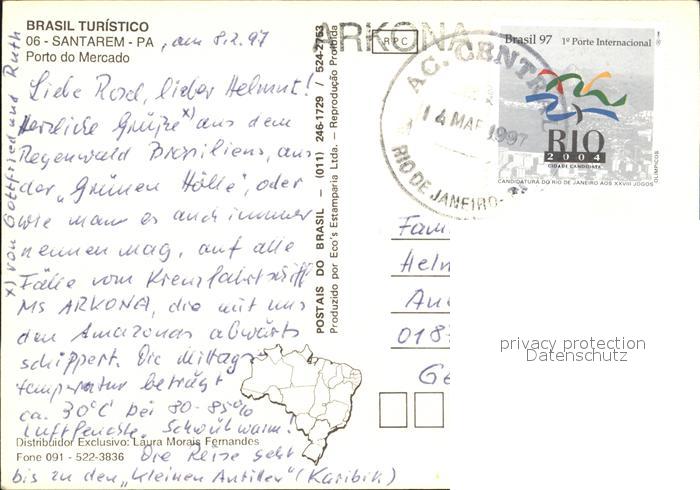 BRASIL TURÍSTICO
06 - SANTAREM - PA, am 8.2.97
Porto do Mercado
Liebe Rosl, lieber Helmut!
Herzliche Grüße x) aus dem
Regenwald Brasiliens, aus
der "Grünen Hölle", oder
wie man es auch immer
nennen mag, auf alle
Fälle vom Kreuzfahrtschiff
MS ARKONA, die mit uns
den Amazonas abwärts
schippert. Die Mittags-
temperatur beträgt
ca. 30°C bei 80-85%
Luftfeuchte. Schwülwarm!
Distribuidor Exclusivo: Laura Morais Fernandes
Fone 091 - 522-3836 Die Reise geht
bis zu den "Kleinen Antillen" (Karibik)
x) von Gottfried und Ruth
POSTAIS DO BRASIL - (011) 246-1729 / 524-2753
Produzido por Eco's Estamparia Ltda. - Reprodução Proibida
ARKONA
RPC
AC. CENTRAL
14 MAR 1997
RIO DE JANEIRO-
Brasil 97 1º Porte Internacional
RIO
2004
CIDADE CANDIDATA
CANDIDATURA DO RIO DE JANEIRO AOS XXVIII JOGOS
OLÍMPICOS
Fam
Helm
An
018
Ge
privacy protection
Datenschutz